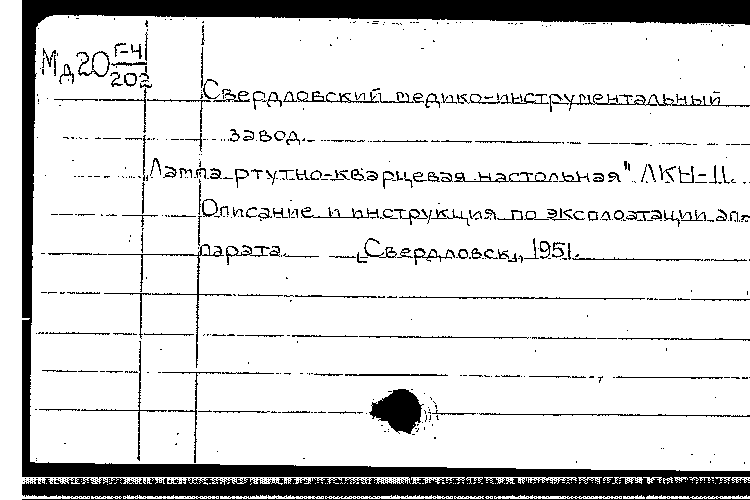 Мд20 Г-4/202
Свердловский медико-инструментальный
завод.
„Лампа ртутно-кварцевая настольная" ЛКН-II.
Описание и инструкция по эксплоатации ап-
парата. [Свердловск], 1951.